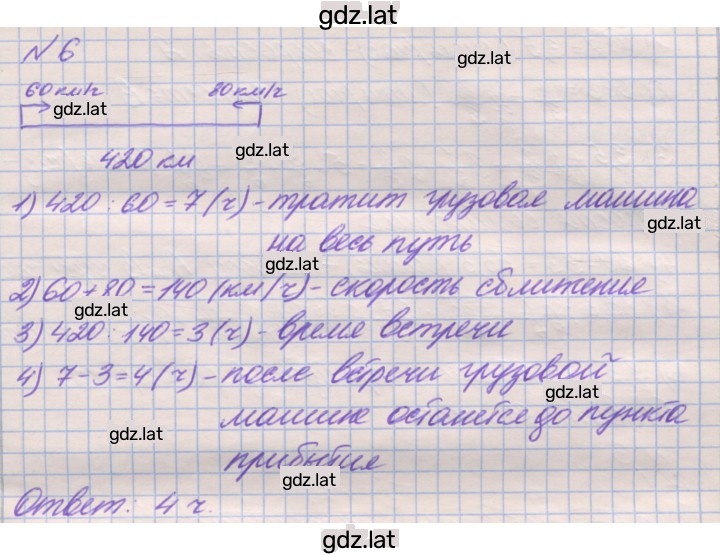 gdz.lat
№6
gdz.lat
60 км/ч 80 км/ч
gdz.lat
420 км
gdz.lat
1) 420 : 60 = 7 (ч) - тратит грузовая машина
gdz.lat
на весь путь
gdz.lat
2) 60 + 80 = 140 (км/ч) - скорость сближения
gdz.lat
3) 420 : 140 = 3 (ч) - время встречи
4) 7 - 3 = 4 (ч) - после встречи грузовой
gdz.lat
машине останется до пункта
gdz.lat
прибытия
gdz.lat
Ответ: 4 ч.
gdz.lat